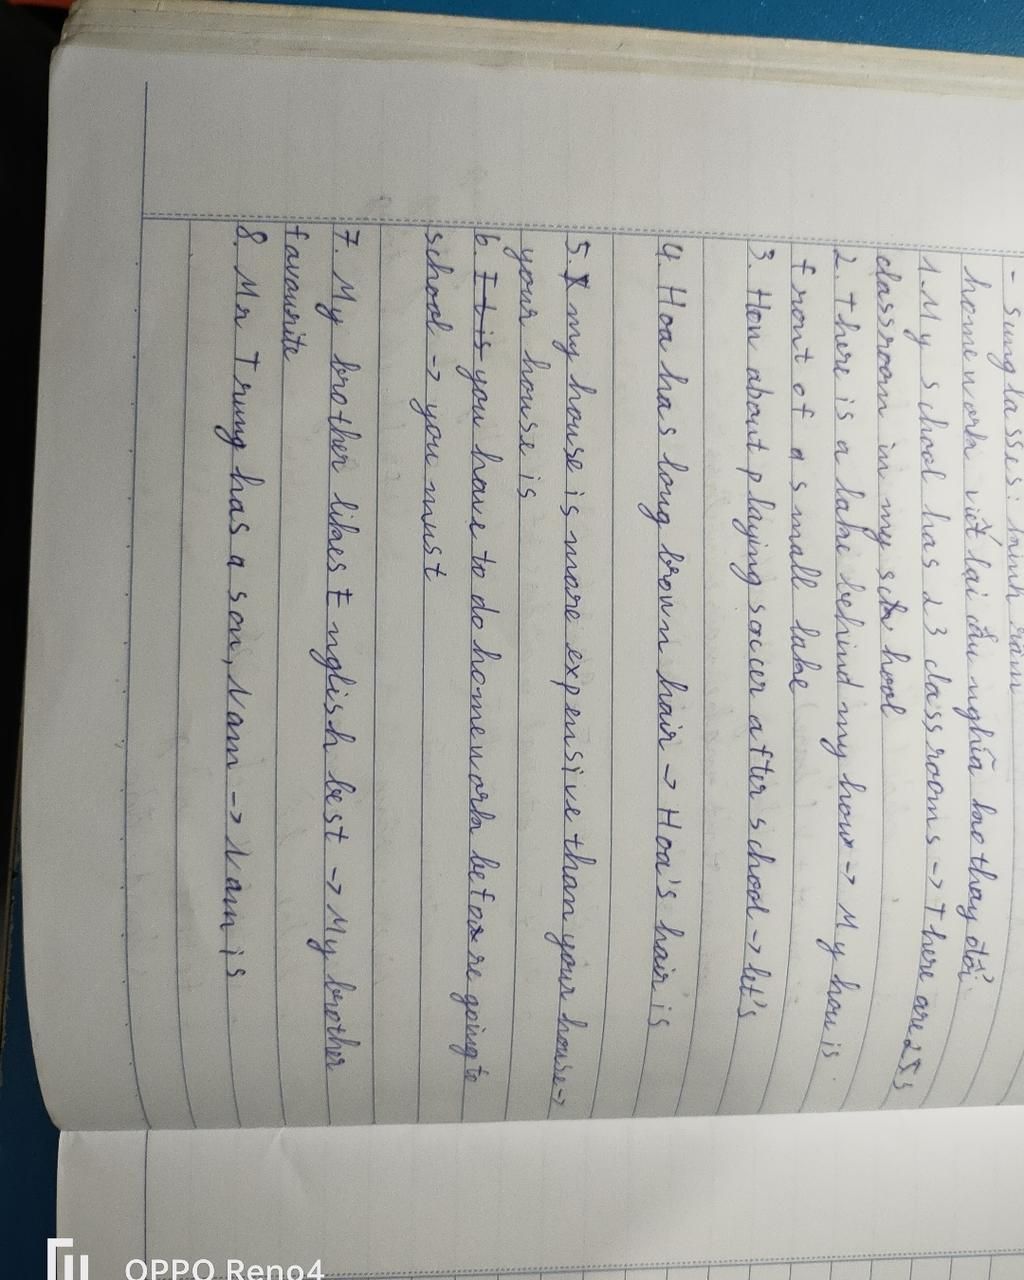 - sunglasses: kính râm
homework viết lại câu nghĩa ko thay đổi
1. My school has 23 classrooms -> There are 23
classroom in my school
2. There is a lake behind my hou -> My hou is
front of a small lake
3. How about playing soccer after school -> let's
4. Hoa has long brown hair -> Hoa's hair is
5. my house is more expensive than your house ->
your house is
6. It is you have to do homework before going to
school -> you must
7. My brother likes English best -> My brother
favourite
8. Mr Trung has a son, Nam -> Nam is
OPPO Reno4